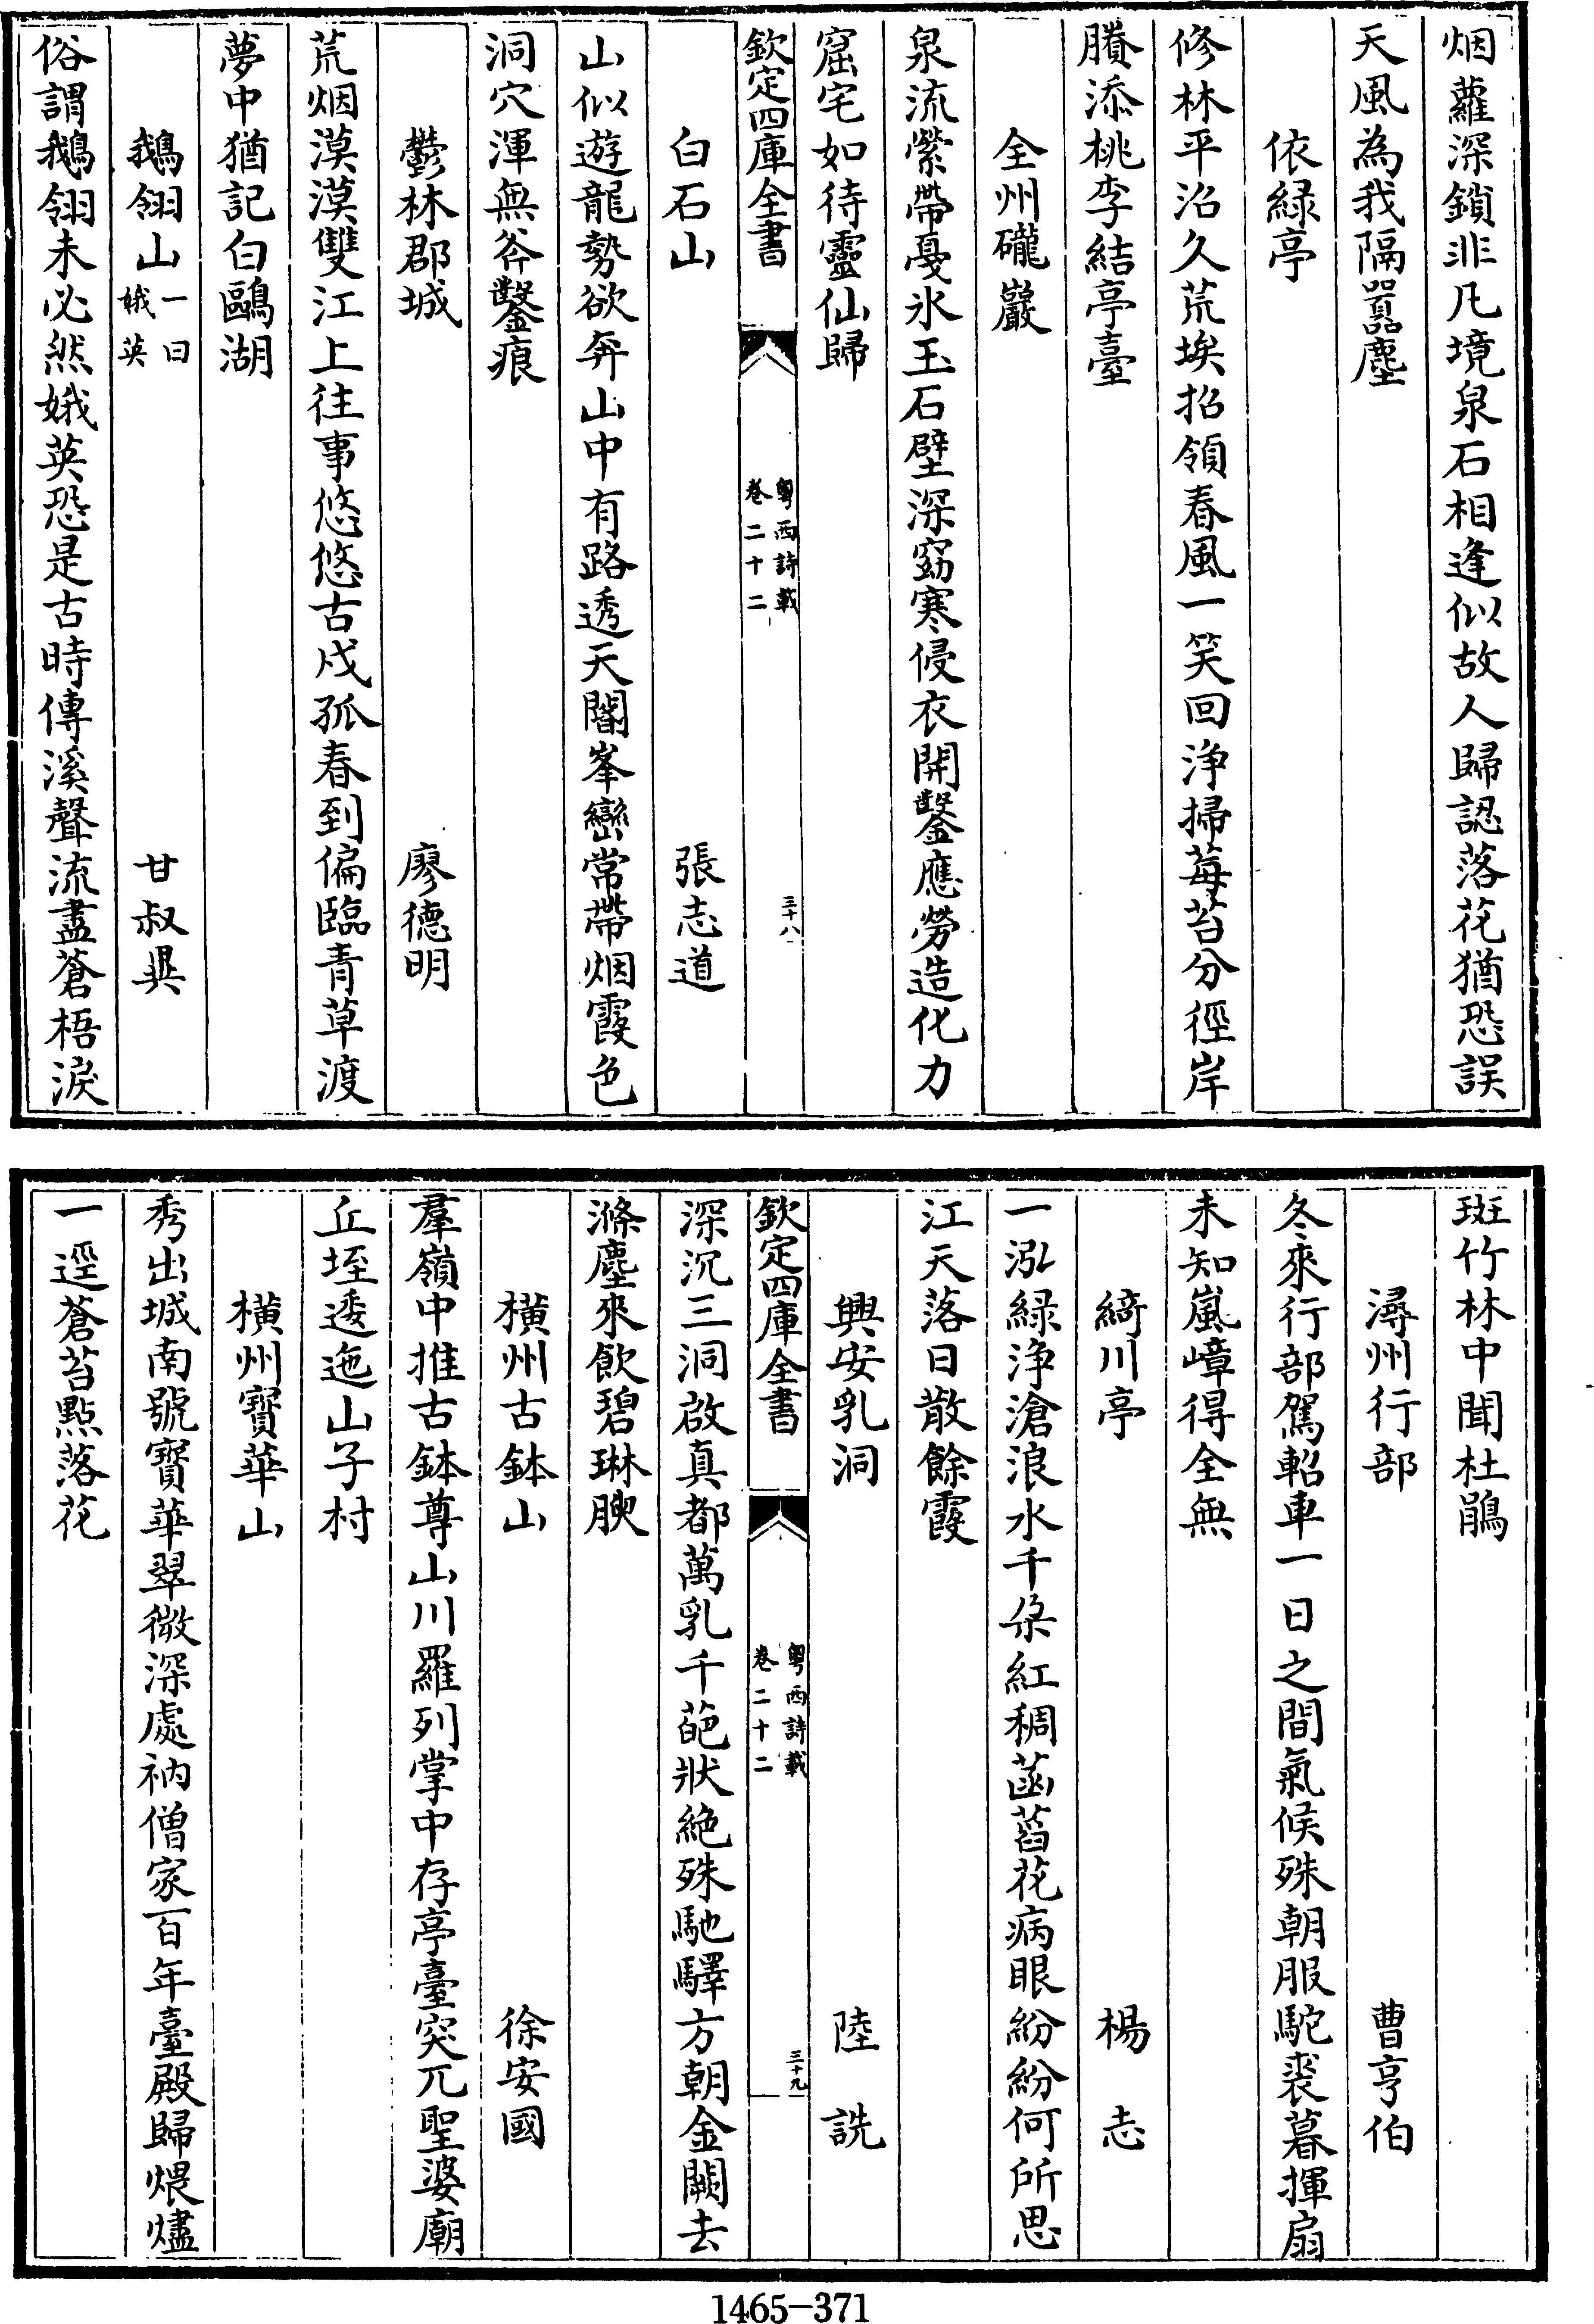 烟蘿深鎖非凡境泉石相逢似故人歸認落花猶恐誤
天風為我隔囂塵
依緑亭
修林平沼久荒埃招領春風一笑回浄掃莓苔分徑岸
賸添桃李結亭臺
全州礲巖
泉流縈帶戞氷玉石壁深窈寒侵衣開鑿應勞造化力
窟宅如待靈仙歸
欽定四庫全書
粤西詩載
卷二十二
三十八
白石山 張志道
山似遊龍勢欲奔山中有路透天閽峯巒常帶烟霞色
洞穴渾無斧鑿痕
鬱林郡城 廖德明
荒烟漠漠雙江上往事悠悠古戍孤春到偏臨青草渡
夢中猶記白鷗湖
鵝翎山一曰娥英 甘叔異
俗謂鵝翎未必然娥英恐是古時傳溪聲流盡蒼梧淚
斑竹林中聞杜鵑
潯州行部 曹亨伯
冬來行部駕軺車一日之間氣候殊朝服駝裘暮揮扇
未知嵐嶂得全無
綺川亭 楊志
一泓緑浄滄浪水千朶紅稠菡萏花病眼紛紛何所思
江天落日散餘霞
興安乳洞 陸詵
欽定四庫全書
粤西詩載
卷二十二
三十九
深沉三洞啟真都萬乳千葩狀絶殊馳驛方朝金闕去
滌塵來飲碧琳腴
横州古鉢山 徐安國
羣嶺中推古鉢尊山川羅列掌中存亭臺突兀聖婆廟
丘垤逶迤山子村
横州寳華山
秀出城南號寳華翠微深處衲僧家百年臺殿歸煨燼
一逕蒼苔點落花
1465-371